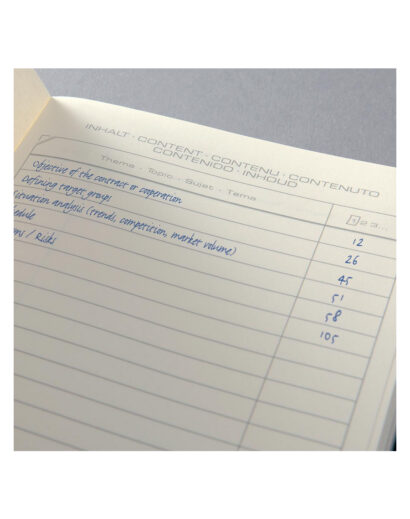 INHALT · CONTENT · CONTENU · CONTENUTO
CONTENIDO · INHOUD
Thema · Topic · Sujet · Tema 123...
Objective of the contract or cooperation 12
Defining target groups 26
Situation analysis (trends, competition, market volume) 45
edule 51
ons / Risks 58
105